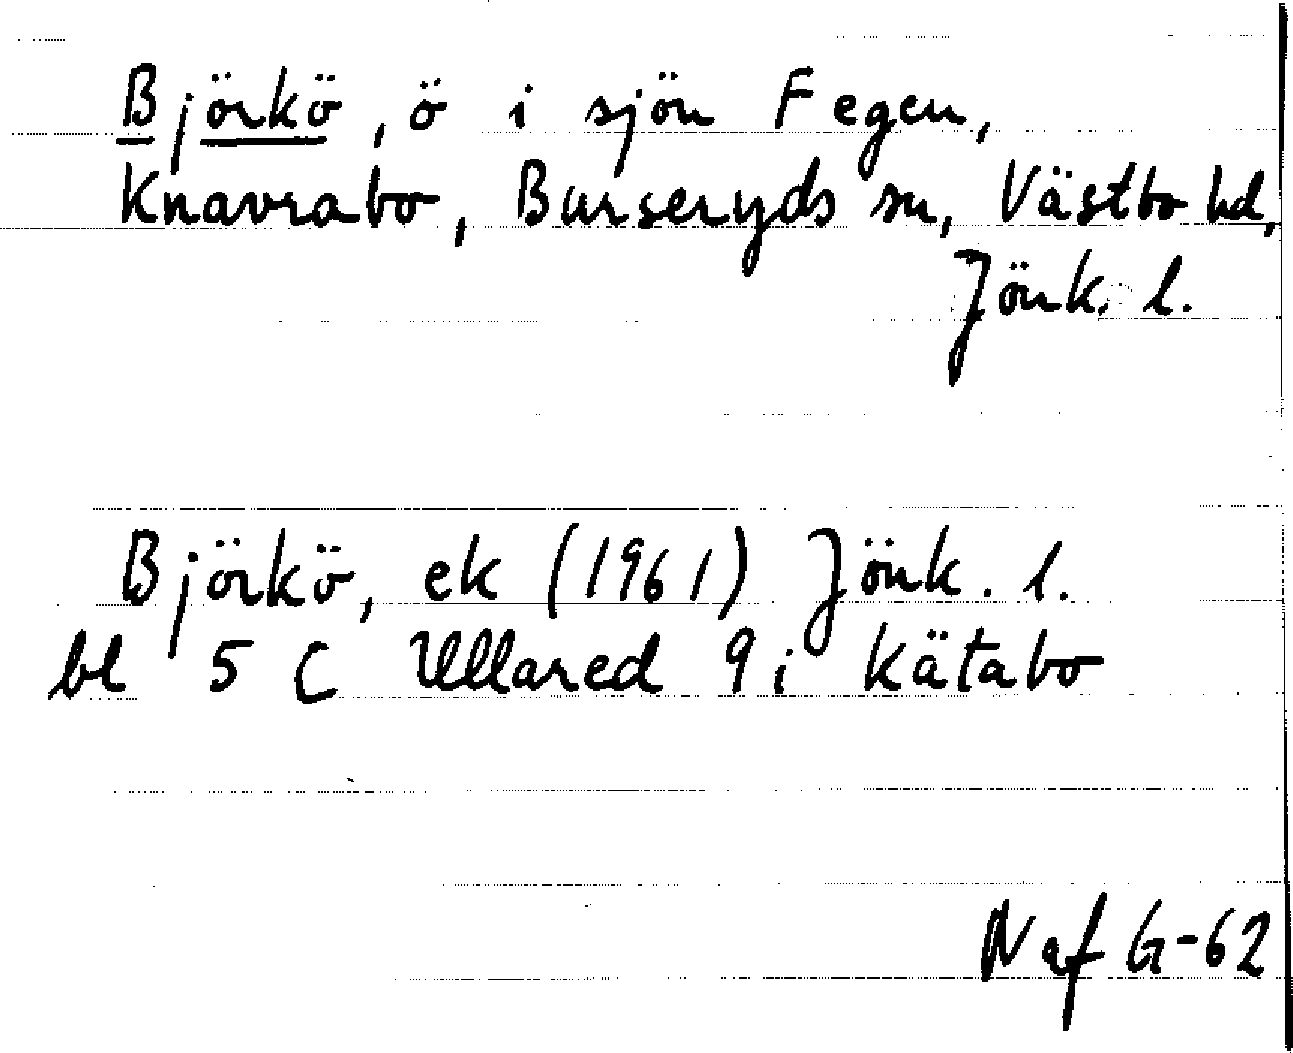 Björkö, ö i sjön Fegen,
Knavrabo, Burseryds sn, Västbo hd,
Jönk. l.
Björkö, ek (1961) Jönk. l.
bl 5 C Ullared 9 i Kätabo
Naf G-62